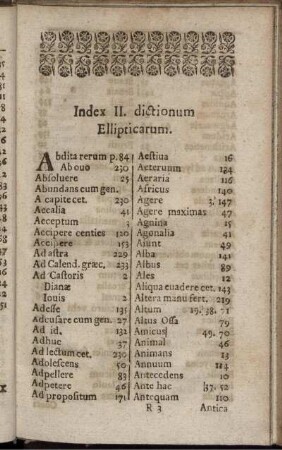 Index II. dictionum
Ellipticarum.
Abdita rerum p. 84
Ab ouo 230
Absoluere 25
Abundans cum gen.
A capite cet. 230
Accalia 41
Acceptum 3
Accipere centies 120
Accipere 153
Ad astra 229
Ad Calend. græc. 233
Ad Castoris 2
Dianæ
Iouis 2
Adesse 135
Adcusare cum gen. 27
Ad id. 132
Adhuc 37
Ad lectum cet. 230
Adolescens 50
Adpellere 83
Adpetere 46
Ad propositum 171
Aestiua 16
Aeternum 184
Aeraria 116
Africus 140
Agere 3. 147
Agere maximas 47
Agnina 15
Agonalia 41
Aiunt 49
Alba 141
Albus 89
Alex 12
Aliqua euadere cet. 143
Altera manu fert. 219
Altum 19. 38. 71
Alsus Ossa 79
Amicus 49. 70
Animal 46
Animans 13
Annuum 114
Antecedens 10
Ante hac 37. 52
Antequam 110
R 3 Antica